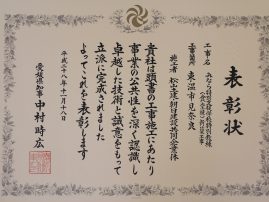 表彰状
工事名
工事箇所 東温市見奈良
施工者
貴社は頭書の工事施工にあたり
事業の公共性を深く認識し
卓越した技術と誠意をもって
立派に完成されました
よってこれを表彰します
平成二十八年十一月十八日
愛媛県知事 中村時広